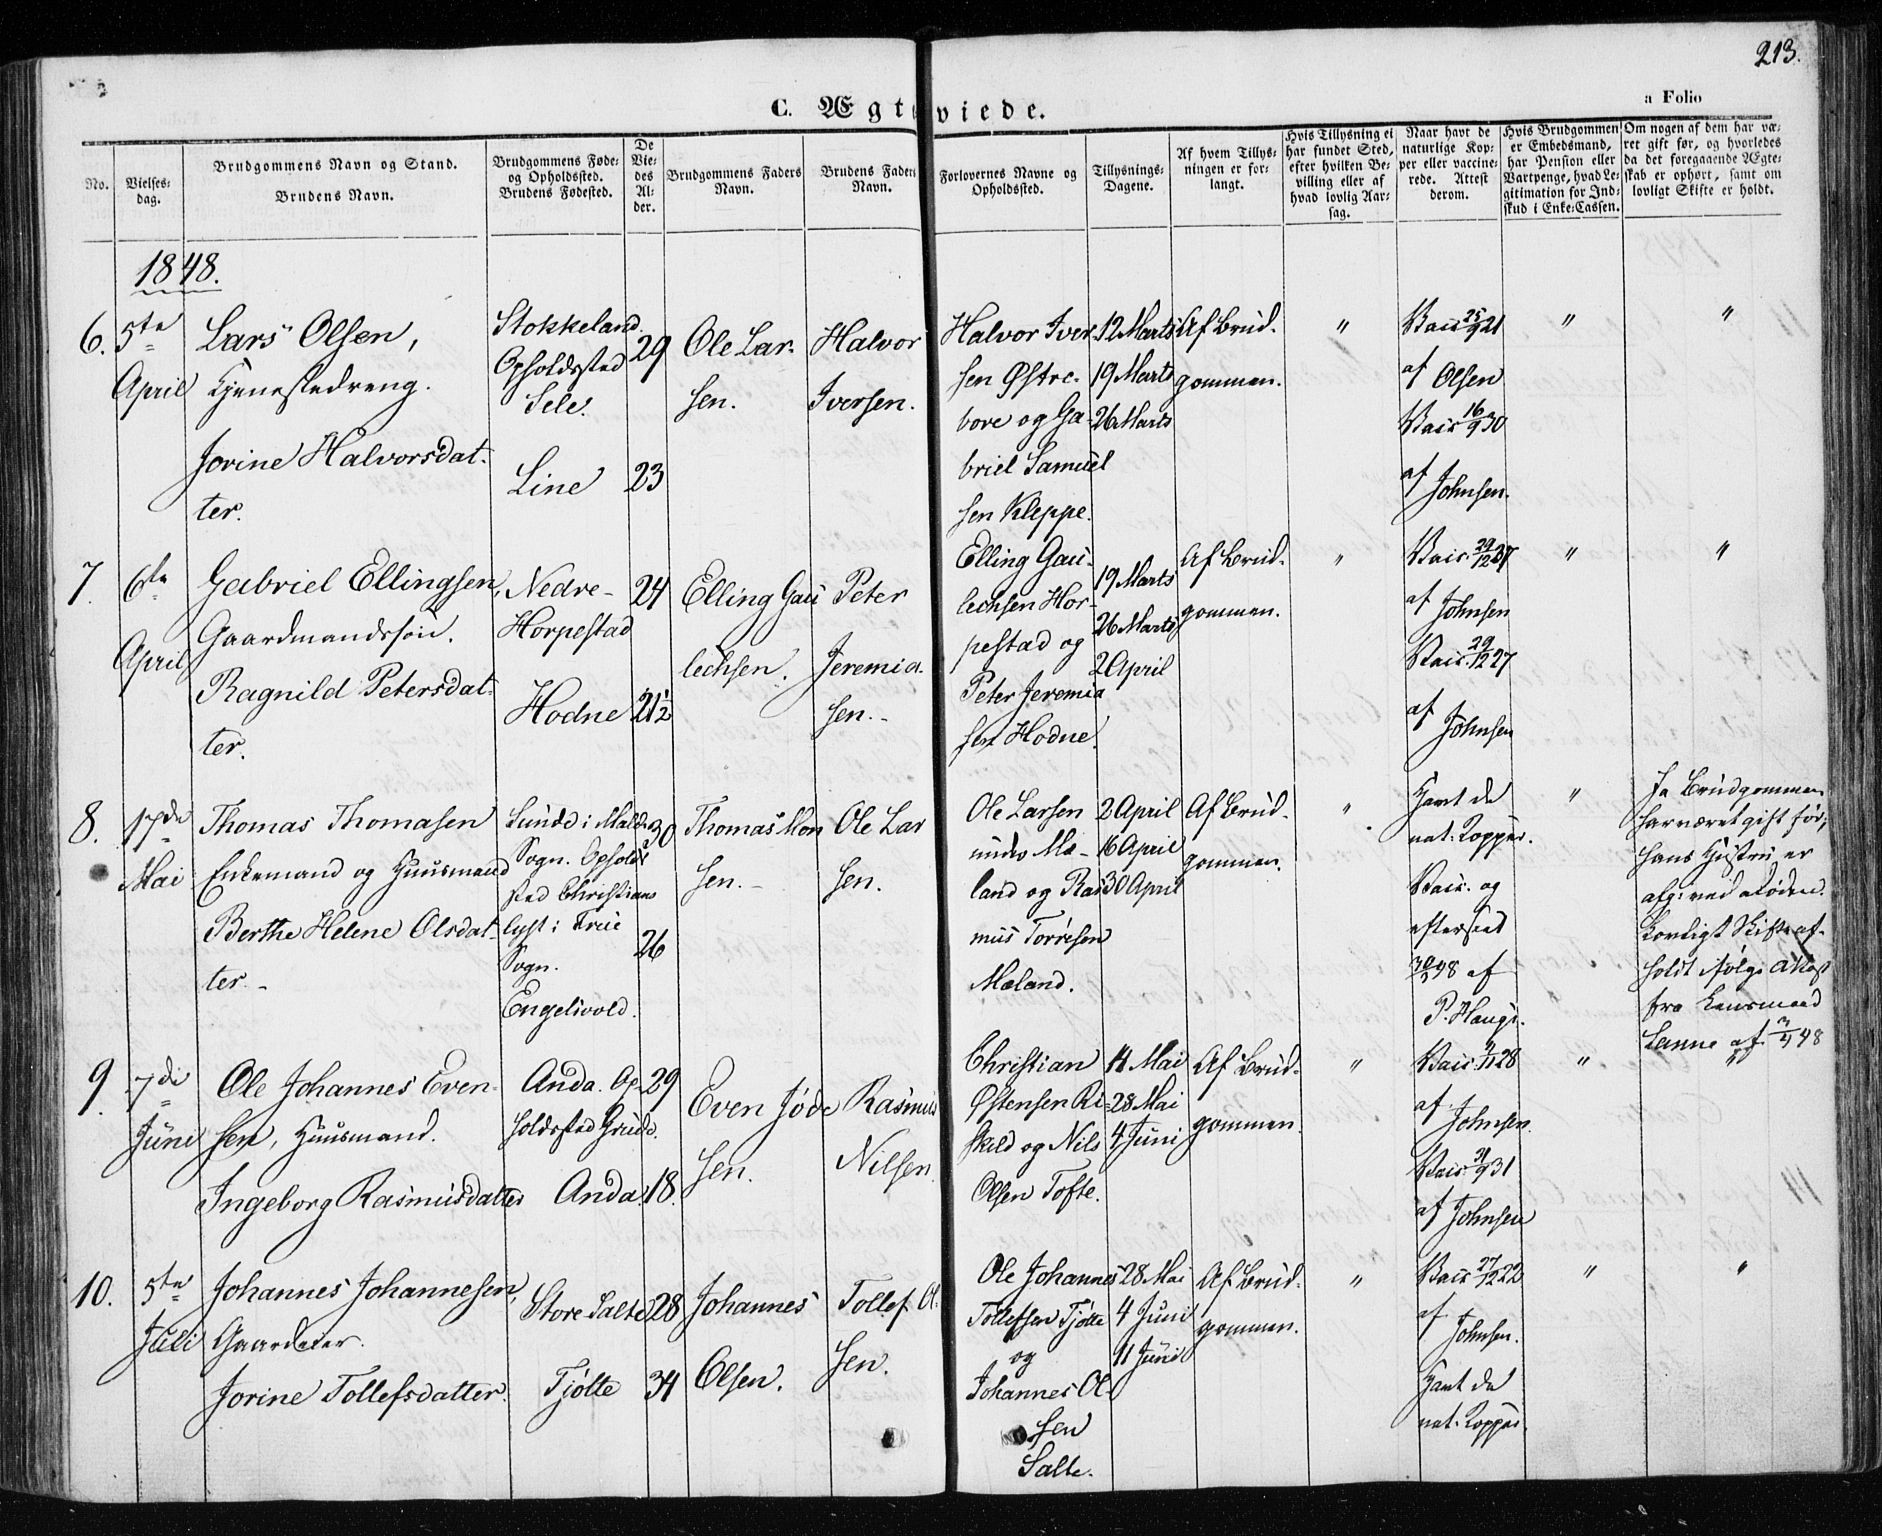 213.
C. Ægteviede.
a Folio
No.
Vielses-
dag.
Brudgommens Navn og Stand.
Brudens Navn.
Brudgommens Føde-
og Opholdssted.
Brudens Fødested.
De
Vie-
des
Al-
der.
Brudgommens Faders
Navn.
Brudens Faders
Navn.
Forlovernes Navne og
Opholdssted.
Tillysnings-
Dagene.
Af hvem Tillys-
ningen er for-
langt.
Hvis Tillysning ei
har fundet Sted,
efter hvilken Be-
villing eller af
hvad lovlig Aar-
sag.
Naar havt de
naturlige Kop-
per eller vaccine-
rede. Attest
derom.
Hvis Brudgommen
er Embedsmand,
har Pension eller
Vartpenge, hvad Le-
gitimation for Ind-
skud i Enke-Cassen.
Om nogen af dem har væ-
ret gift før, og hvorledes
da det foregaaende Ægte-
skab er ophørt, samt om
lovligt Skifte er holdt.
1848.
6.
5te
April
Lars Olsen,
Tjenestedreng.
Jorine Halvorsdat-
ter.
Stokkeland.
Opholdssted
Sele.
Line
29
23
Ole Lar-
sen.
Halvor
Iversen.
Halvor Iver-
sen Østre-
bore og Ga-
briel Samuel
sen Kleppe.
12 Marts
19 Marts
26 Marts
Af Brud-
gommen.
"
Vacc. 25/9 21
af Olsen
Vacc. 16/9 30
af Johnsen.
"
"
7.
6te
April
Gabriel Ellingsen,
Gaardmandssøn.
Ragnild Petersdat-
ter.
Nedre-
Horpestad
Hodne
24
21½
Elling Gau
lechsen.
Peter
Jeremia-
sen.-
Elling Gau-
lechsen Hor-
pestad og
Peter Jeremia
sen Hodne.
19 Marts
26 Marts
2 April
Af Brud-
gommen.
"
Vacc. 29/12 37
af Johnsen
Vacc. 29/12 27
af Johnsen
"
"
8.
17de
Mai
Thomas Thomasen
Enkemand og Huusmand
Berthe Helene Olsdat-
ter.-
Sunde i Malde
Sogn. Opholds
sted Christians
lyst i Frue
Sogn.
Engelsvold.
30
26
Thomas Mon
sen.-
Ole Lar
sen.
Ole Larsen
under Mæ-
land og Ras
mus Torresen
Mæland.
2 April
16 April
30 April
Af Brud-
gommen.
"
Havt de
nat. Kopper.
Vacc. og
efterseet
af
P. Hauge.
"
Ja Brudgommen
har været gift før,
hans Hustru er
afg. ved Døden.
Lovligt Skifte af-
holdt ifølge Attest
fra Lensmand
Lanne af 3/4 48
9.
7de
Juni
Ole Johannes Even-
sen, Huusmand.
Ingeborg Rasmusdatter
Anda. Op-
holdssted Grude.
Anda.
29
18.
Even Jøde
sen.
Rasmus
Nilsen.
Christian
Østensen Ri-
skild og Nils
Olsen Tofte.
14 Mai
28 Mai
4 Juni
Af Brud-
gommen.
"
Vacc. 28
af Johnsen.
Vacc. 31
af Johnsen
"
"
10.
5te
Juli
Johannes Johannesen,
Gaardeier.
Jorine Tollefsdatter.
Store Salte
Tjøtte
28
34
Johannes
Olsen.
Tollef Ol-
sen.
Ole Johannes
Tollefsen Tjøtte
og
Johannes Ol-
sen
Salte.
28 Mai
4 Juni
11 Juni
Af Brud-
gommen.
"
Vacc. 27/12 22
af Johnsen.
Havt de
nat. Kopper.
"
"